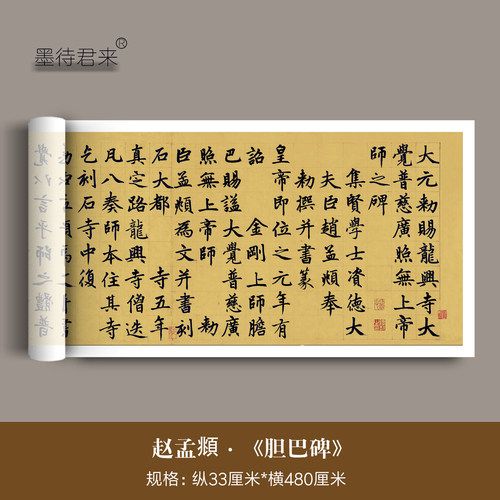 墨待君来®
大元勅賜龍興寺大
覺普慈廣照無上帝
師之碑
集賢學士資德大
夫臣趙孟頫奉
勅撰并書篆
皇帝即位之元年有
詔 金剛上師膽
巴賜謚大覺普慈廣
照無上帝師 勅
臣孟頫為文并書刻
石大都 寺五年
真定路龍興寺僧迭
凡八奏師本住其寺
乞刻石寺中復
赵孟頫·《胆巴碑》
规格：纵33厘米*横480厘米